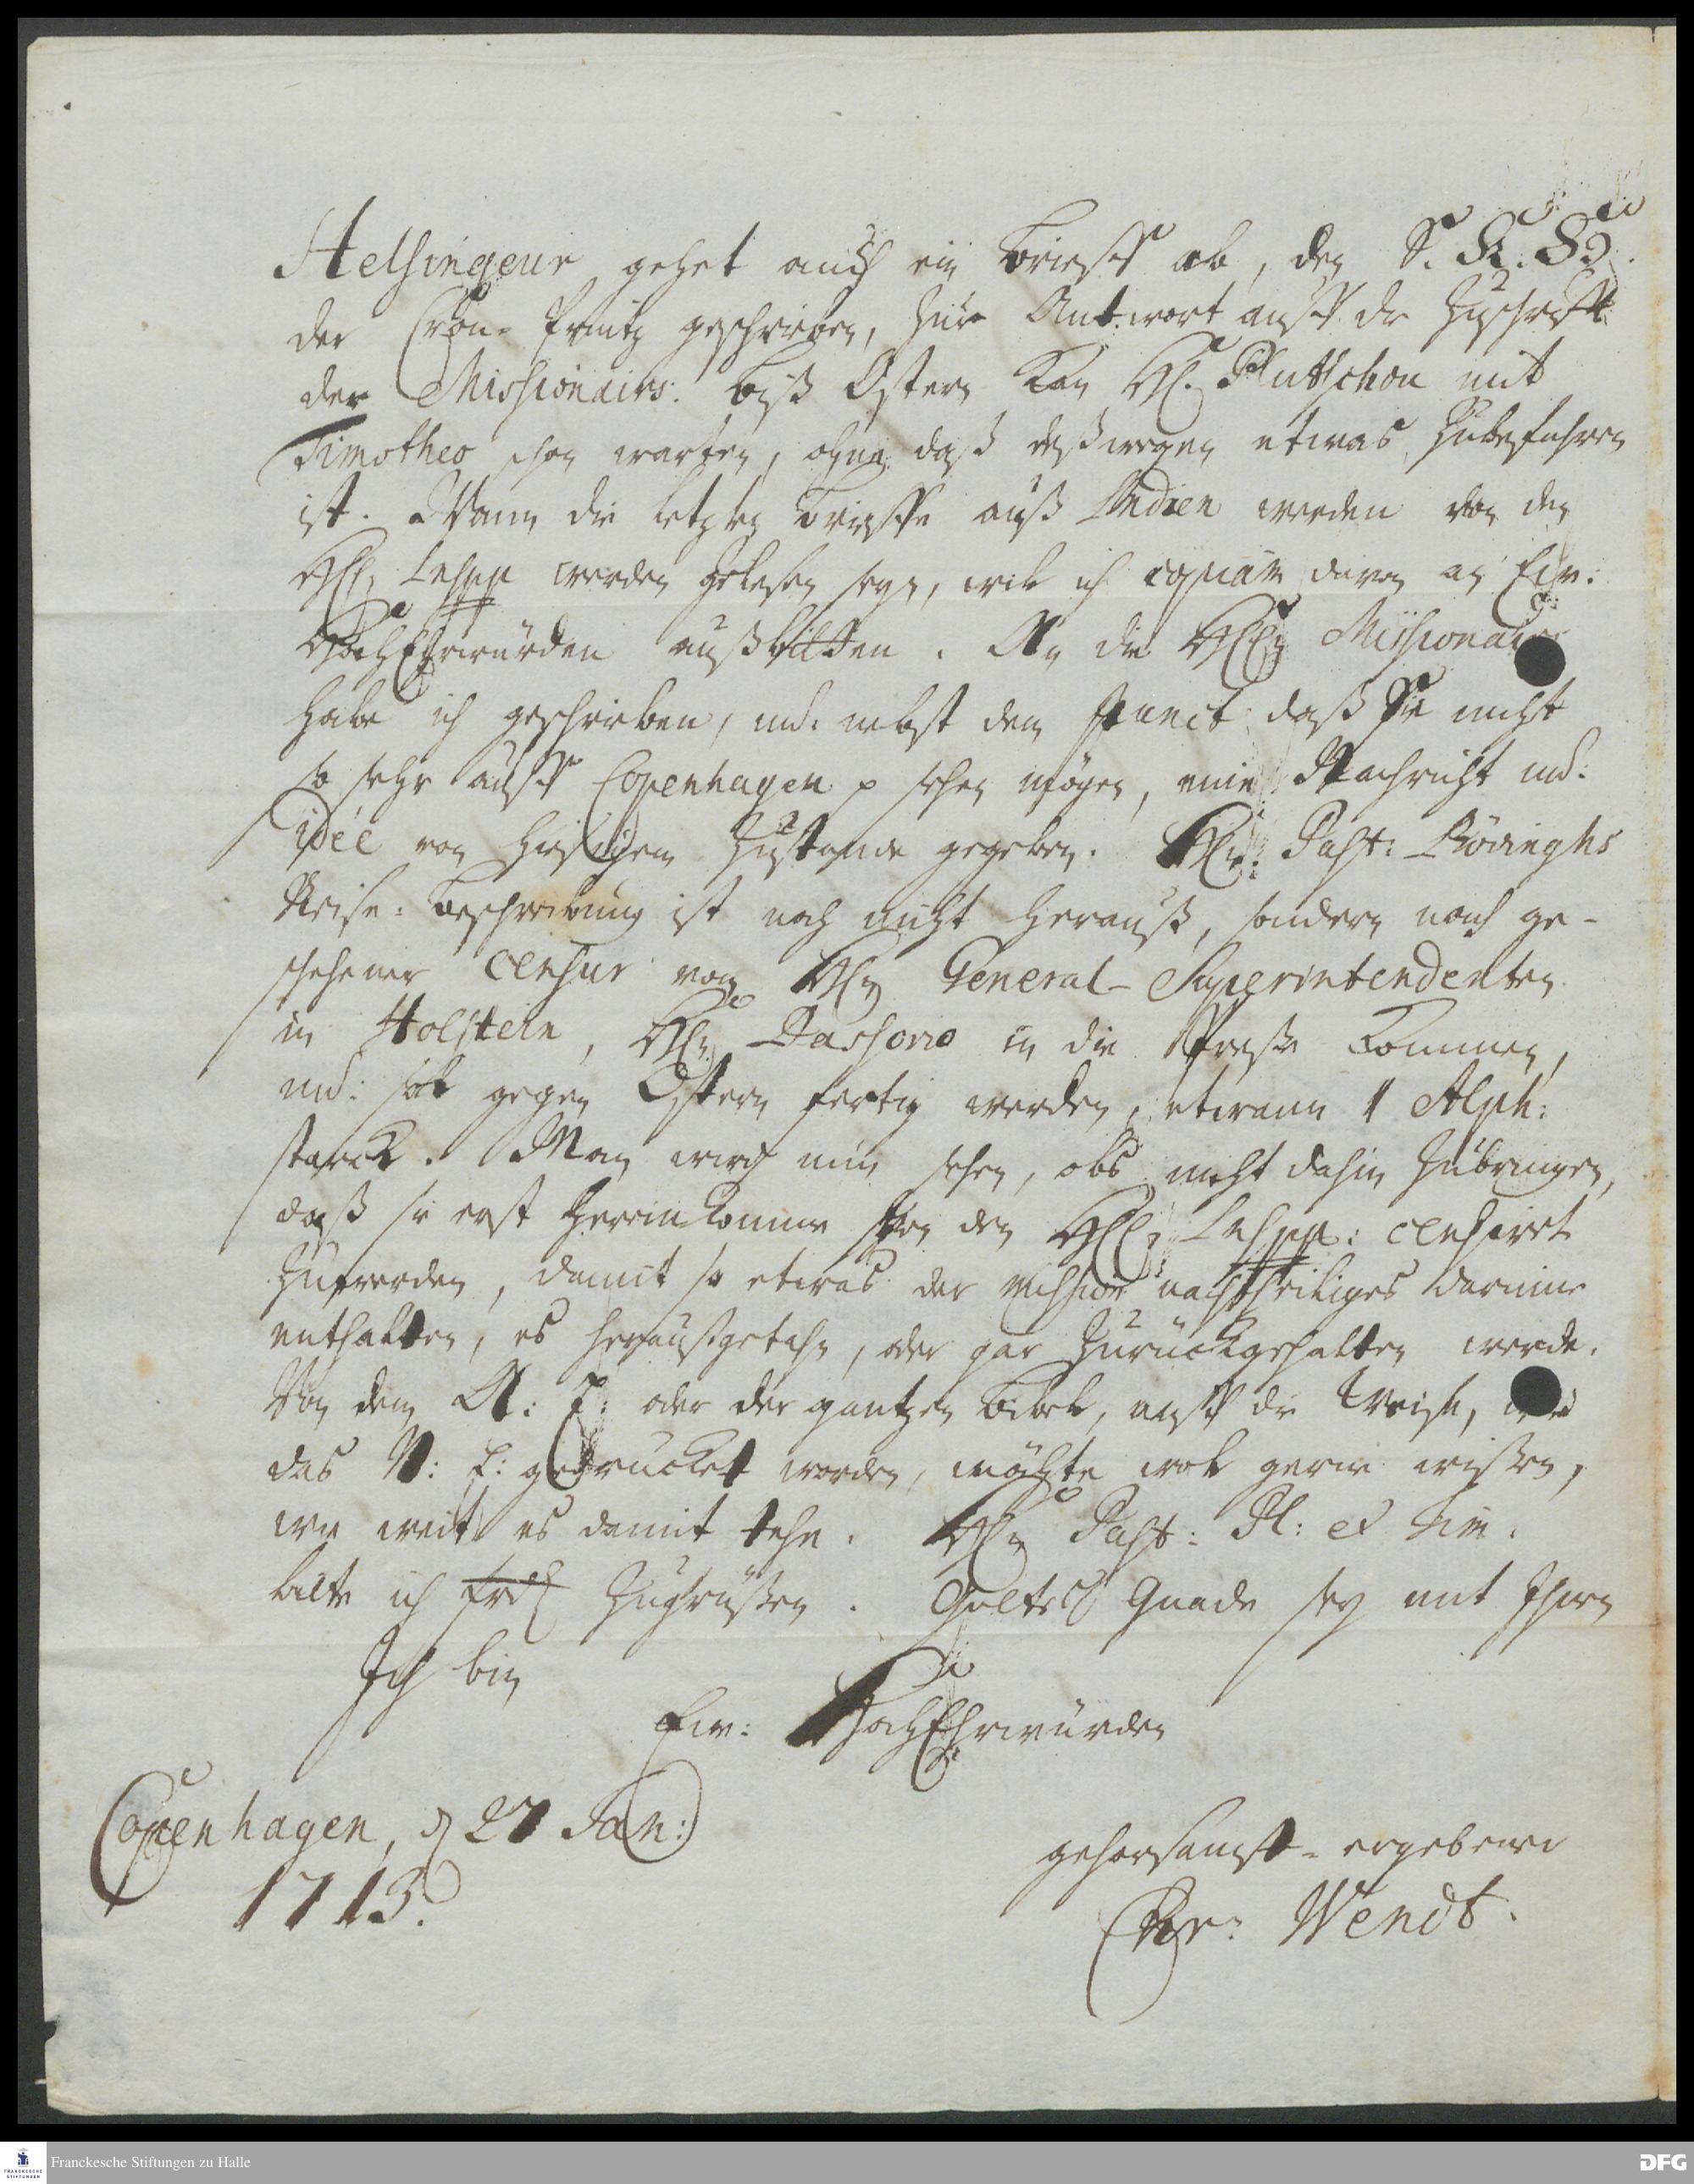 Helsingeur gehet auch ein Brieff ab, den S. K. H.
der Cron-Printz geschrieben, zur Antwort auff die Zuschrifft
der Missionairs. Biß Ostern kan H. Plutschou mit
Timotheo schon warten, ohne daß deßwegen etwas zubefahren
ist. Wann die letzten Brieffe auß Indien werden von den
HH. werden gelesen seyn, will ich copiam davon an Ew:
HochEhrwürden außbitten. An die HHn Missionair
habe ich geschrieben, und: nebst dem Punct daß sie nicht
so sehr auff Copenhagen p sehen mögen, eine Nachricht und:
idée von hiesigem Zustande gegeben. Hn: Past: Bövinghs
Reise-Beschreibung ist noch nicht herauß, sondern nach ge-
schehener Censur von Hn General-Superintendenten
in Holstein, Hn Dassovio in die Presse kommen,
und: soll gegen Ostern fertig werden, etwann 1 Alph:
starck. Man wird nun sehen, obs nicht dahin zubringen,
daß sie erst herein komme von den HHn censiret
zuwerden, damit so etwas der Mission nachtheiliges darinne
enthalten, es heraußgethan, oder gar zurückgehalten werde.
Von dem A: T: oder der gantzen Bibel, auff die Weise, wie
das N: T: gedrucket worden, möchte wol gerne wissen,
wie weit es damit stehe. Hn Past: Pl: et Tim.
bitte ich zugrüssen. Gottes Gnade sey mit Ihnen
Ich bin
Ew: HochEhrwürden
Copenhagen, d 27 Jan:
1713.
gehorsamst-ergebener
Chr: Wendt.
Franckesche Stiftungen zu Halle
FRANCKESCHE STIFTUNGEN
DFG